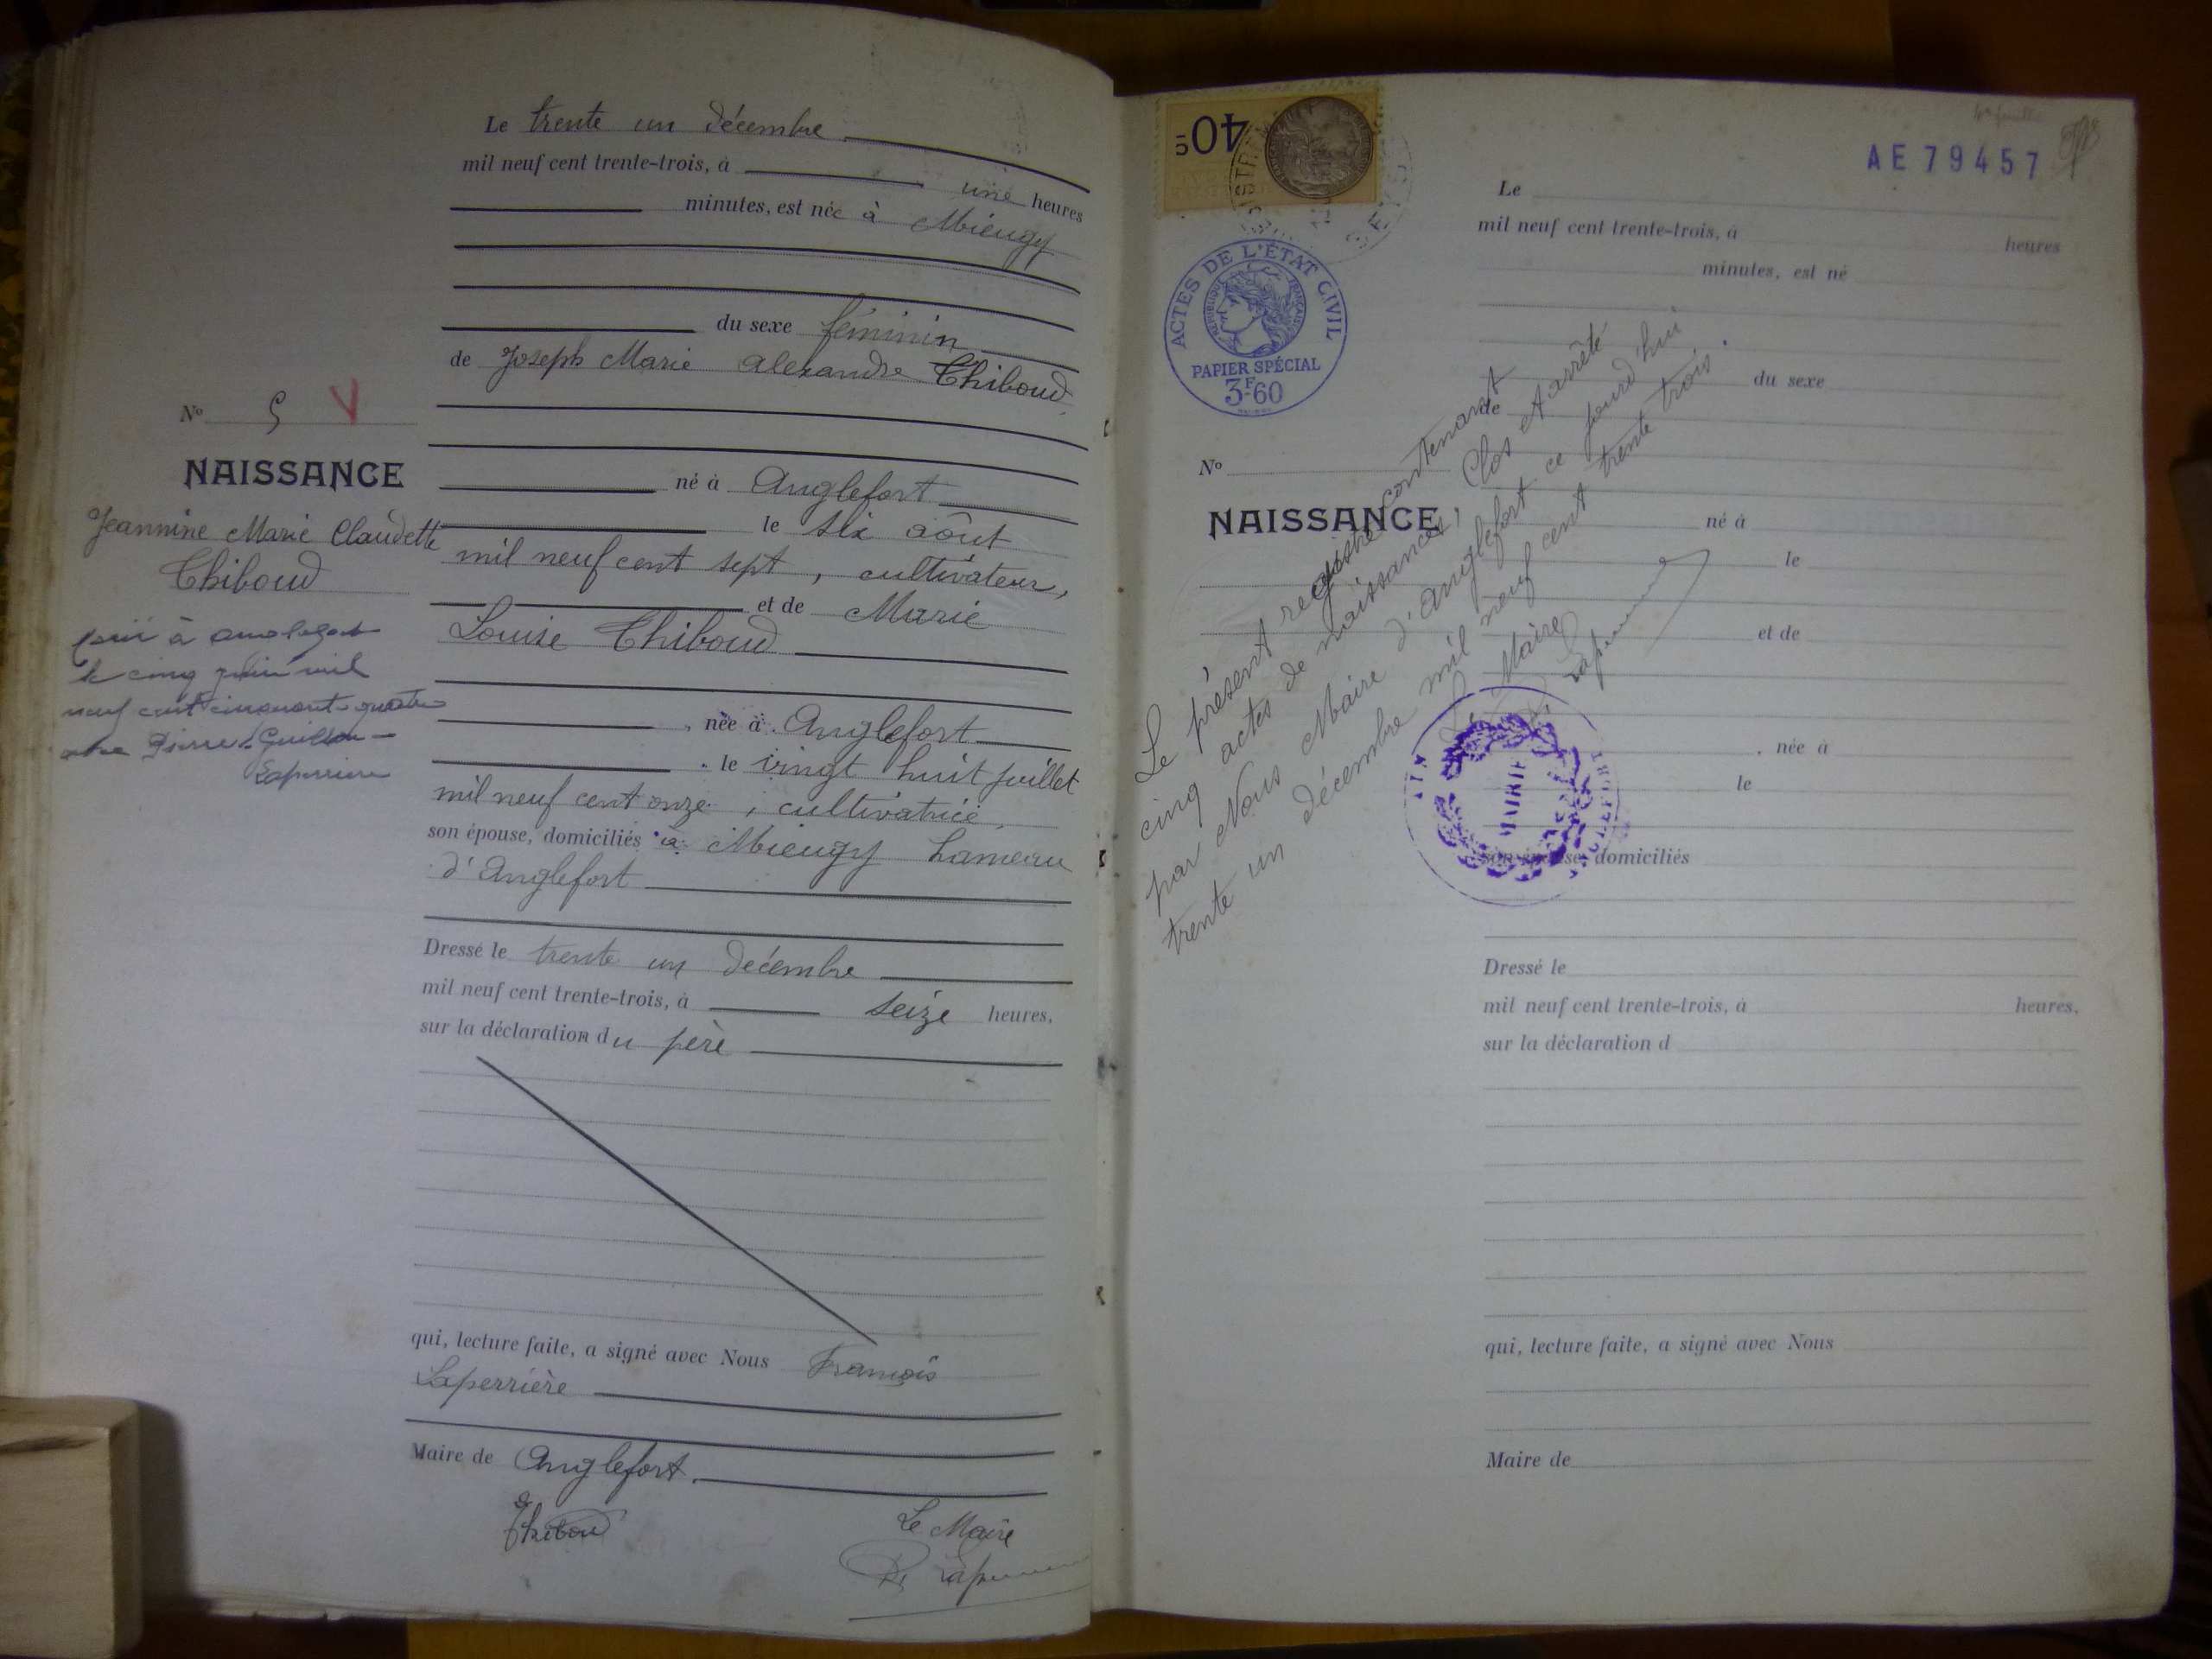 Le trente un décembre
mil neuf cent trente-trois, à une heures
minutes, est née à Mieugy
du sexe féminin
de Joseph Marie Alexandre Thiboud
né à Anglefort
le six août
mil neuf cent sept, cultivateur,
et de Marie
Louise Thiboud
, née à Anglefort
le vingt huit juillet
mil neuf cent onze, cultivatrice,
son épouse, domiciliés à Mieugy hameau
d'Anglefort
Dressé le trente un décembre
mil neuf cent trente-trois, à seize heures,
sur la déclaration du père
qui, lecture faite, a signé avec Nous François
Laperrière
Maire de Anglefort.
Thiboud
Le Maire
Laperrière
No 5 V
NAISSANCE
Jeannine Marie Claudette
Thiboud
à Anglefort
le cinq juin mil
neuf cent cinquante quatre
avec Pierre Guillon
Laperrière
40c
ACTES DE L'ÉTAT CIVIL
RÉPUBLIQUE FRANÇAISE
PAPIER SPÉCIAL
3F60
AE 79457
Le
mil neuf cent trente-trois, à heures
minutes, est né
du sexe
de
No
NAISSANCE
né à
le
et de
, née à
le
son épouse, domiciliés
Dressé le
mil neuf cent trente-trois, à heures,
sur la déclaration d
qui, lecture faite, a signé avec Nous
Maire de
Le présent registre contenant
cinq actes de naissances, Clos et arrêté
par Nous Maire d'Anglefort ce jourd'hui
trente un décembre mil neuf cent trente trois.
Le Maire
Laperrière
MAIRIE
ANGLEFORT
AIN